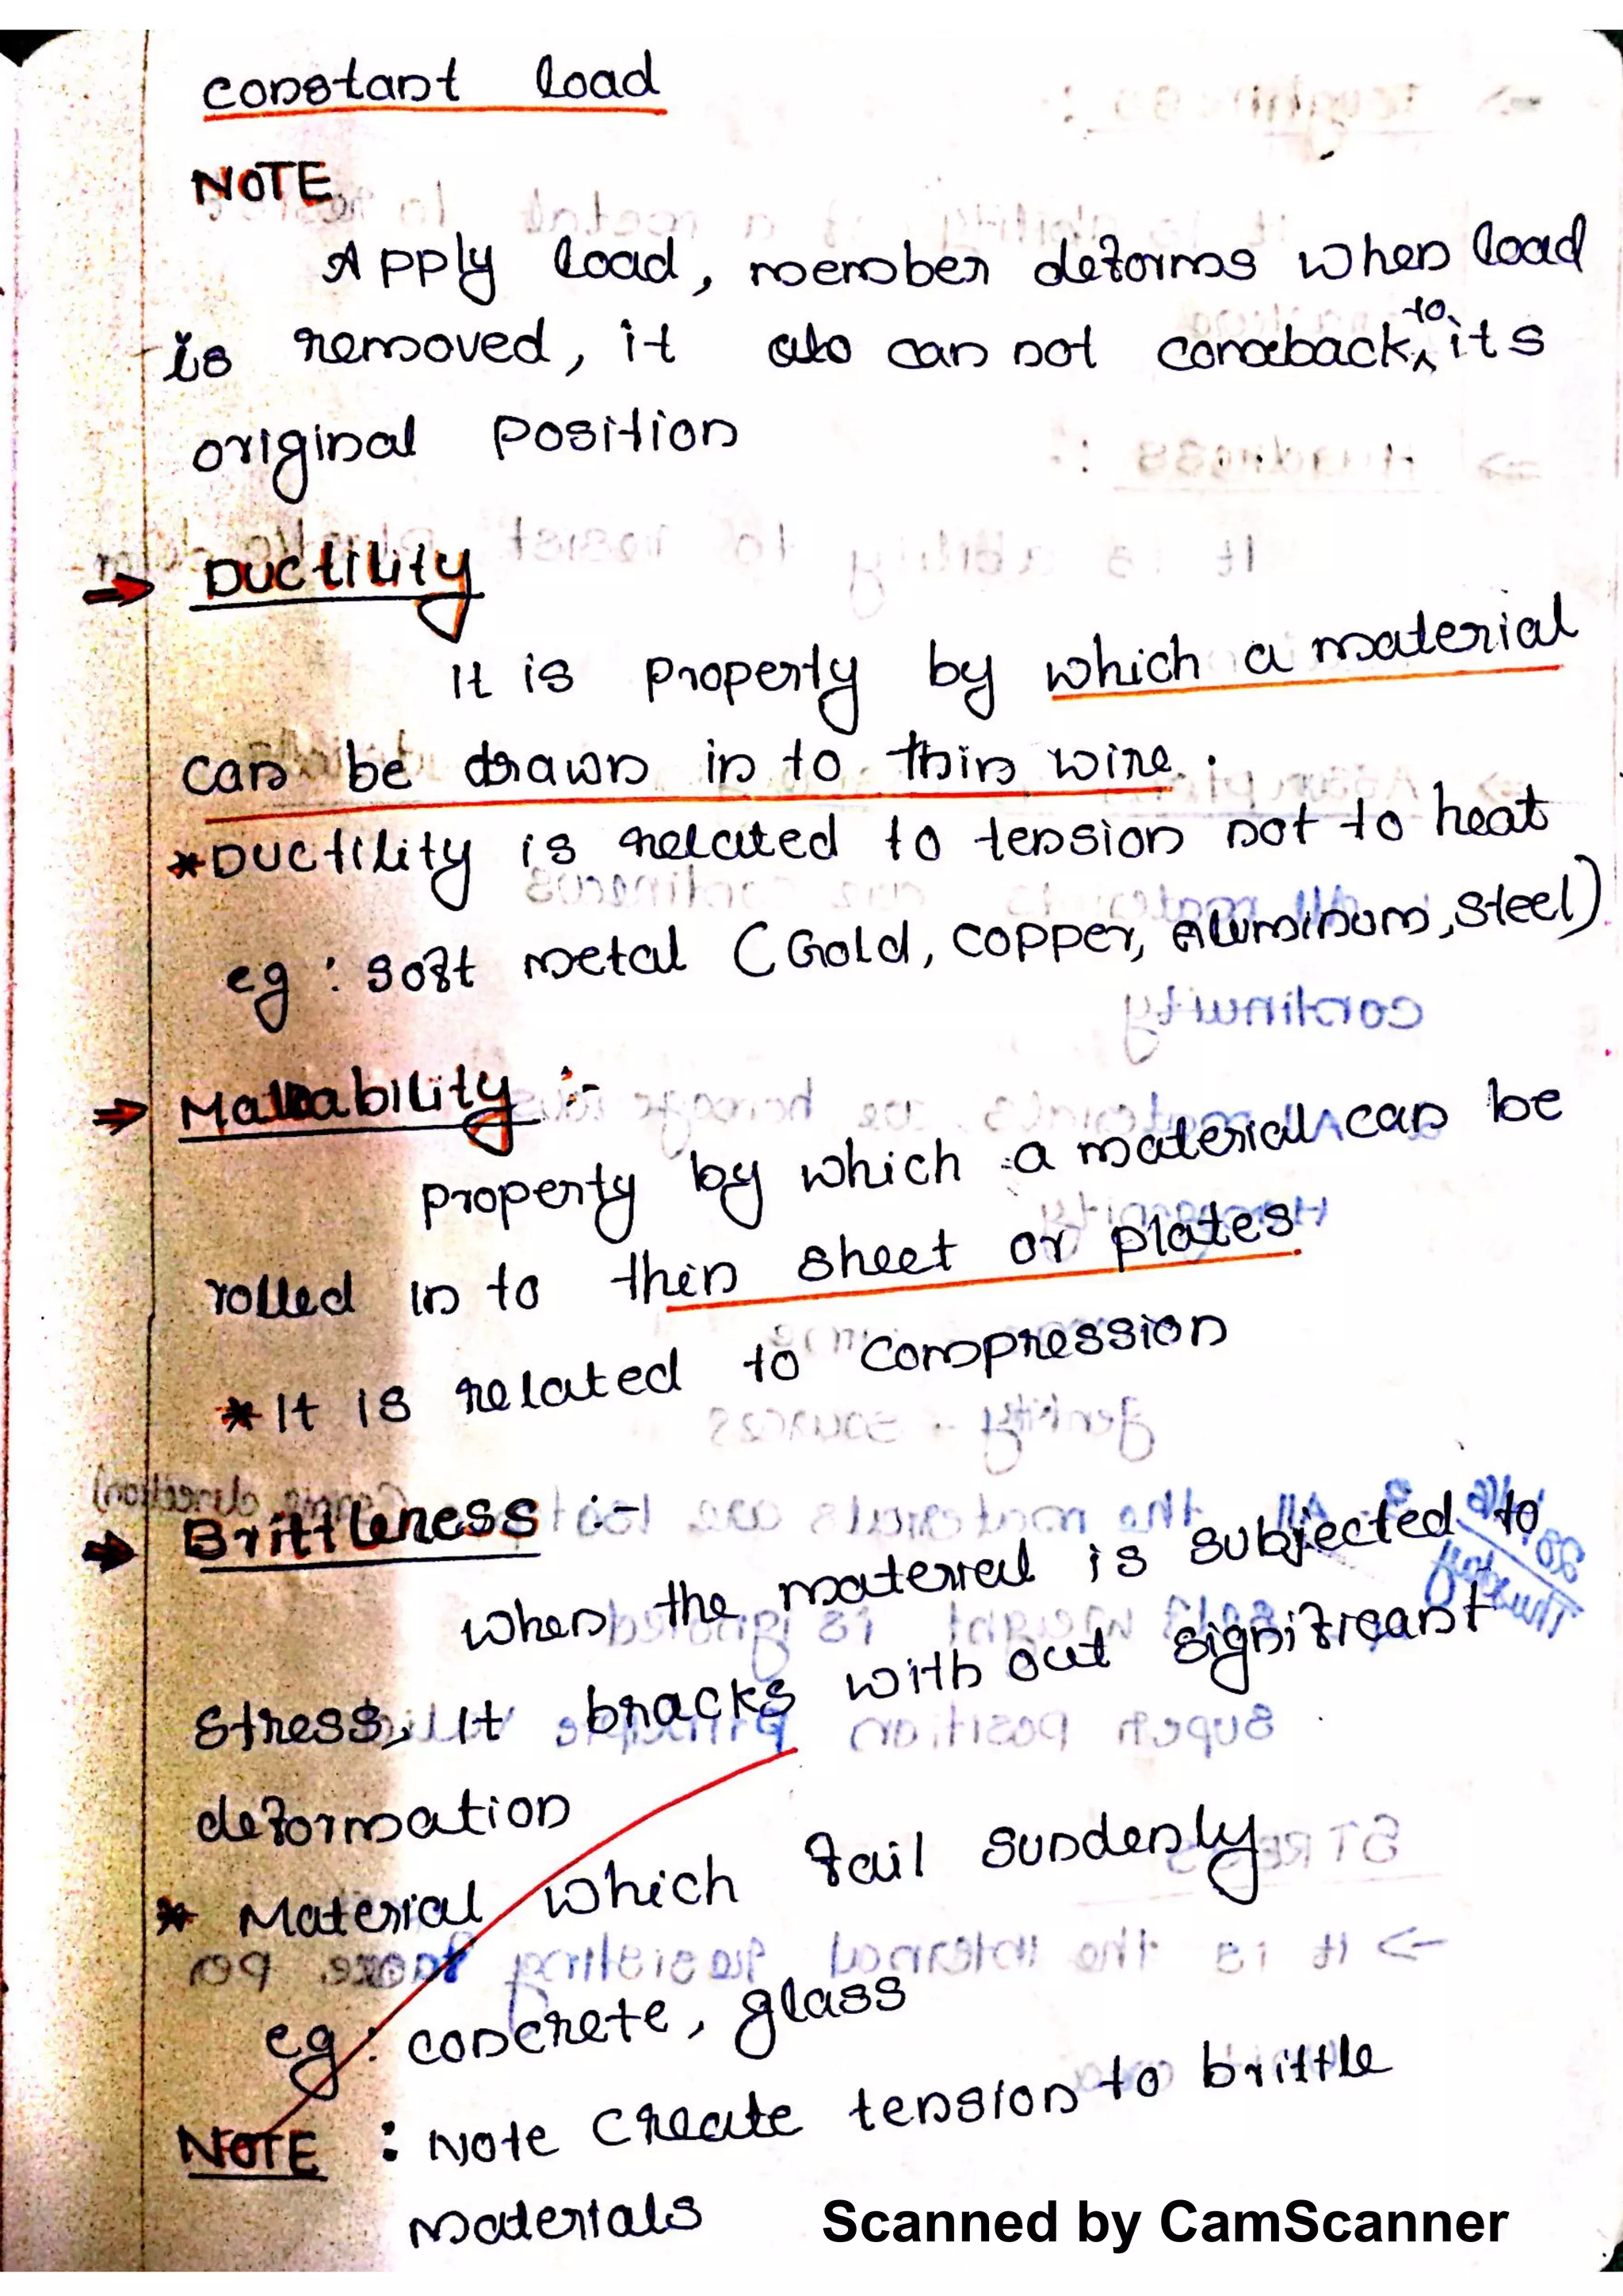 constant load
NOTE
Apply load, member deforms when load
is removed, it can not comeback to its
original position
→ Ductility
It is property by which a material
can be drawn in to thin wire.
* Ductility is related to tension not to heat
eg : soft metal (Gold, copper, Aluminum, steel)
→ Malleability :-
property by which a material can be
rolled in to thin sheet or plates
* It is related to compression
→ Brittleness :-
when the material is subjected to
stress, It bracks with out significant
deformation
* Material which fail sundenly
eg : concrete, glass
NOTE : Note create tension to brittle
materials
Scanned by CamScanner